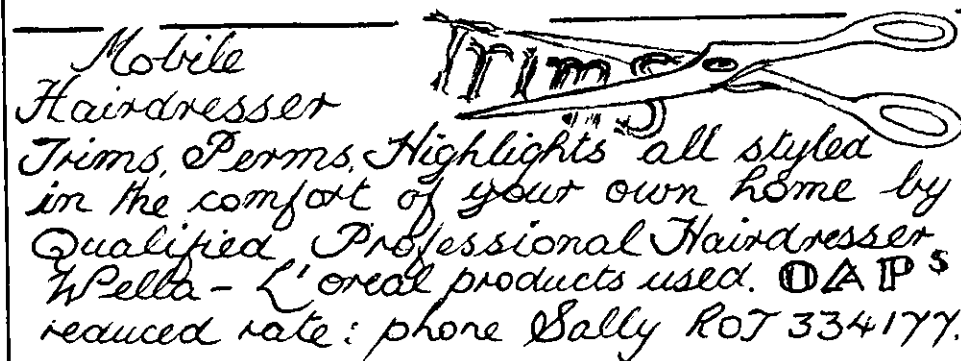 Mobile
Hairdresser
Trims, Perms, Highlights all styled
in the comfort of your own home by
Qualified Professional Hairdresser
Wella - L'oreal products used. OAPs
reduced rate: phone Sally ROT 334177.